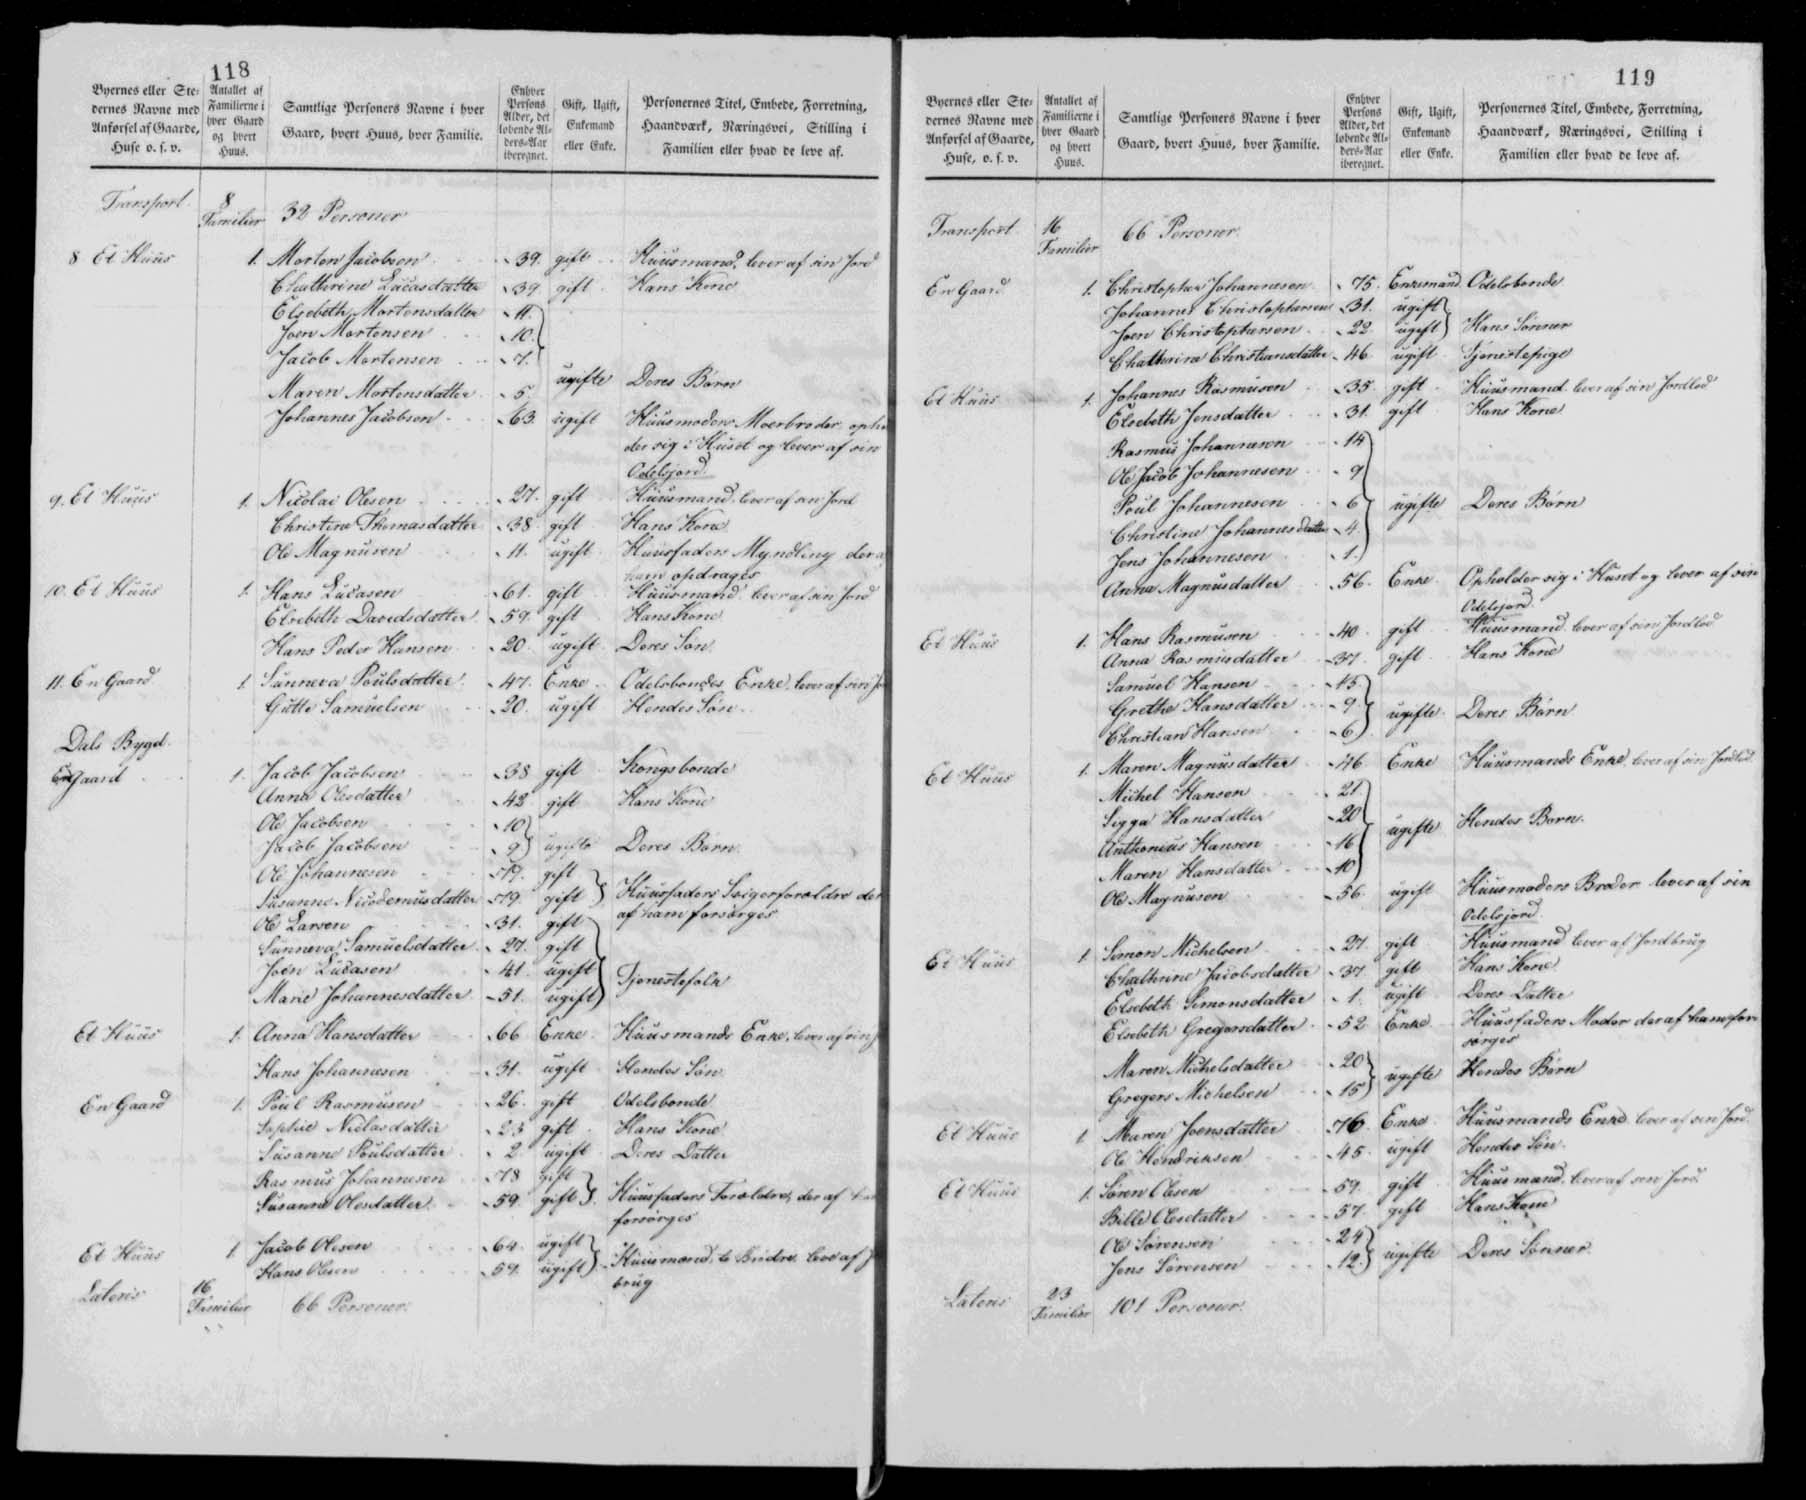 118
Byernes eller Ste- dernes Navne med Anførsel af Gaarde, Huse o. s. v. | Antallet af Familierne i hver Gaard og hvert Huus. | Samtlige Personers Navne i hver Gaard, hvert Huus, hver Familie. | Enhver Persons Alder, det løbende Al- ders-Aar iberegnet. | Gift, Ugift, Enkemand eller Enke. | Personernes Titel, Embede, Forretning, Haandværk, Næringsvei, Stilling i Familien eller hvad de leve af.
Transport. 8 Familier 32 Personer
8 Et Huus 1. Morten Jacobsen 39. gift Huusmand, lever af sin Jord
Chathrine Lucasdatter 39. gift Hans Kone
Elsebeth Mortensdatter 11.
Joen Mortensen 10.
Jacob Mortensen 7.
Maren Mortensdatter 5. ugifte Deres Børn
Johannes Jacobsen 63. ugift Huusmoders Moerbroder, opho
der sig i Huset og lever af sin
Odelsjord.
9. Et Huus 1. Nicolai Olesen 27. gift Huusmand, lever af sin Jord
Christine Thomasdatter 38. gift Hans Kone
Ole Magnusen 11. ugift Huusfaders Myndling der a
ham opdrages
10. Et Huus 1. Hans Lucasen 61. gift Huusmand, lever af sin Jord
Elsebeth Davidsdatter 59. gift Hans Kone
Hans Peder Hansen 20. ugift Deres Søn.
11. En Gaard 1. Sunneva Poulsdatter 47. Enke Odelsbondes Enke, lever af sin Jo
Gutte Samuelsen 20. ugift Hendes Søn.
Dals Bygd.
En Gaard 1. Jacob Jacobsen 38 gift Kongsbonde
Anna Olesdatter 42 gift Hans Kone
Ole Jacobsen 10
Jacob Jacobsen 9 ugifte Deres Børn.
Ole Johannesen 77. gift
Susanne Nicodemusdatter 79. gift Huusfaders Svigerforældre der
af ham forsørges
Ole Larsen 31. gift
Sunneva Samuelsdatter 27. gift
Joen Lucasen 41. ugift Tjenestefolk
Marie Johannesdatter 51. ugift
Et Huus 1. Anna Hansdatter 66 Enke Huusmands Enke, lever af sin J
Hans Johannesen 31. ugift Hendes Søn.
En Gaard 1. Poul Rasmusen 26. gift Odelsbonde
Sophie Niclasdatter 23 gift Hans Kone
Susanne Poulsdatter 2 ugift Deres Datter
Rasmus Johannesen 78 gift
Susanne Olesdatter 59. gift Huusfaders Forældre, der af ham
forsørges
Et Huus 1. Jacob Olesen 64. ugift
Hans Olesen 59. ugift Huusmænd, to Brødre leve af J
brug
Lateris 16 Familier 66 Personer.
119
Byernes eller Ste- dernes Navne med Anførsel af Gaarde, Huse, o. s. v. | Antallet af Familierne i hver Gaard og hvert Huus. | Samtlige Personers Navne i hver Gaard, hvert Huus, hver Familie. | Enhver Persons Alder, det løbende Al- ders-Aar iberegnet. | Gift, Ugift, Enkemand eller Enke. | Personernes Titel, Embede, Forretning, Haandværk, Næringsvei, Stilling i Familien eller hvad de leve af.
Transport 16 Familier 66 Personer.
En Gaard 1. Christopher Johannesen 75. Enkemand Odelsbonde
Johannes Christophersen 31. ugift
Joen Christophersen 22 ugift Hans Sønner
Chathrine Christiansdatter 46 ugift Tjenestepige
Et Huus 1. Johannes Rasmusen 35 gift Huusmand lever af sin Jordlod
Elsebeth Jensdatter 31. gift Hans Kone
Rasmus Johannesen 14
Ole Jacob Johannesen 9
Poul Johannesen 6 ugifte Deres Børn
Christine Johannesdatter 4
Jens Johannesen 1.
Anna Magnusdatter 56 Enke Opholder sig i Huset og lever af sin
Odelsjord.
Et Huus 1. Hans Rasmusen 40 gift Huusmand, lever af sin Jordlod
Anna Rasmusdatter 37. gift Hans Kone
Samuel Hansen 15
Grethe Hansdatter 9 ugifte Deres Børn
Christian Hansen 6
Et Huus 1. Maren Magnusdatter 46 Enke Huusmands Enke lever af sin Jordlod
Michel Hansen 21
Sigga Hansdatter 20 ugifte Hendes Børn.
Anthonius Hansen 16
Maren Hansdatter 10
Ole Magnusen 56 ugift Huusmoders Broder lever af sin
Odelsjord.
Et Huus 1. Simon Michelsen 27 gift Huusmand lever af Jordbrug
Chathrine Jacobsdatter 37 gift Hans Kone
Elsebeth Simonsdatter 1. ugift Deres Datter
Elsebeth Gregersdatter 52 Enke Huusfaders Moder der af ham for-
sørges
Maren Michelsdatter 20
Gregers Michelsen 15 ugifte Hendes Børn
Et Huus 1. Maren Joensdatter 76 Enke Huusmands Enke lever af sin Jord.
Ole Hendriksen 45. ugift Hendes Søn.
Et Huus 1. Søren Olesen 59. gift Huusmand, lever af sin Jord.
Bille Olesdatter 57. gift Hans Kone
Ole Sørensen 24
Jens Sørensen 12 ugifte Deres Sønner.
Lateris 23 Familier 101 Personer.